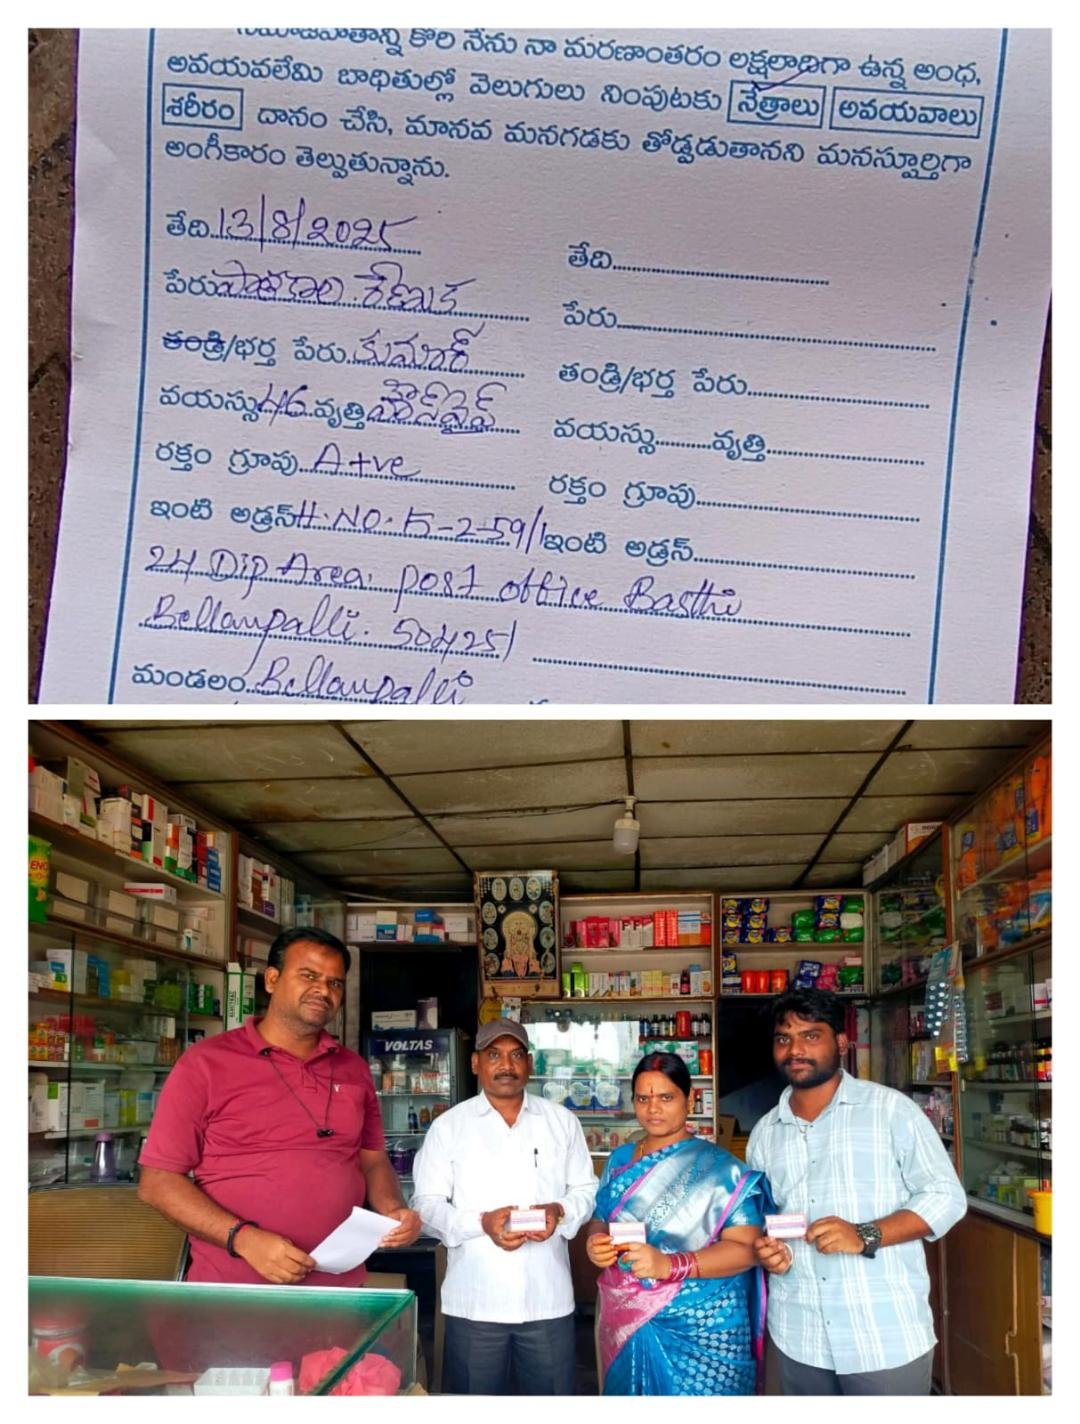 కోరి నేను నా మరణాంతరం లక్షలాదిగా ఉన్న అంధ,
అవయవలేమి బాధితుల్లో వెలుగులు నింపుటకు నేత్రాలు అవయవాలు
శరీరం దానం చేసి, మానవ మనగడకు తోడ్పడుతానని మనస్ఫూర్తిగా
అంగీకారం తెల్పుతున్నాను.
తేది 13/8/2025 తేది
పేరు రేణుక పేరు
తండ్రి/భర్త పేరు కుమార్ తండ్రి/భర్త పేరు
వయస్సు 46 వృత్తి హౌస్‌వైఫ్ వయస్సు వృత్తి
రక్తం గ్రూపు A+ve రక్తం గ్రూపు
ఇంటి అడ్రస్ H.NO.15-2-59/1 ఇంటి అడ్రస్
24 Dip Area. post office Basthi
Bellampalli. 504251
మండలం Bellampalli
VOLTAS